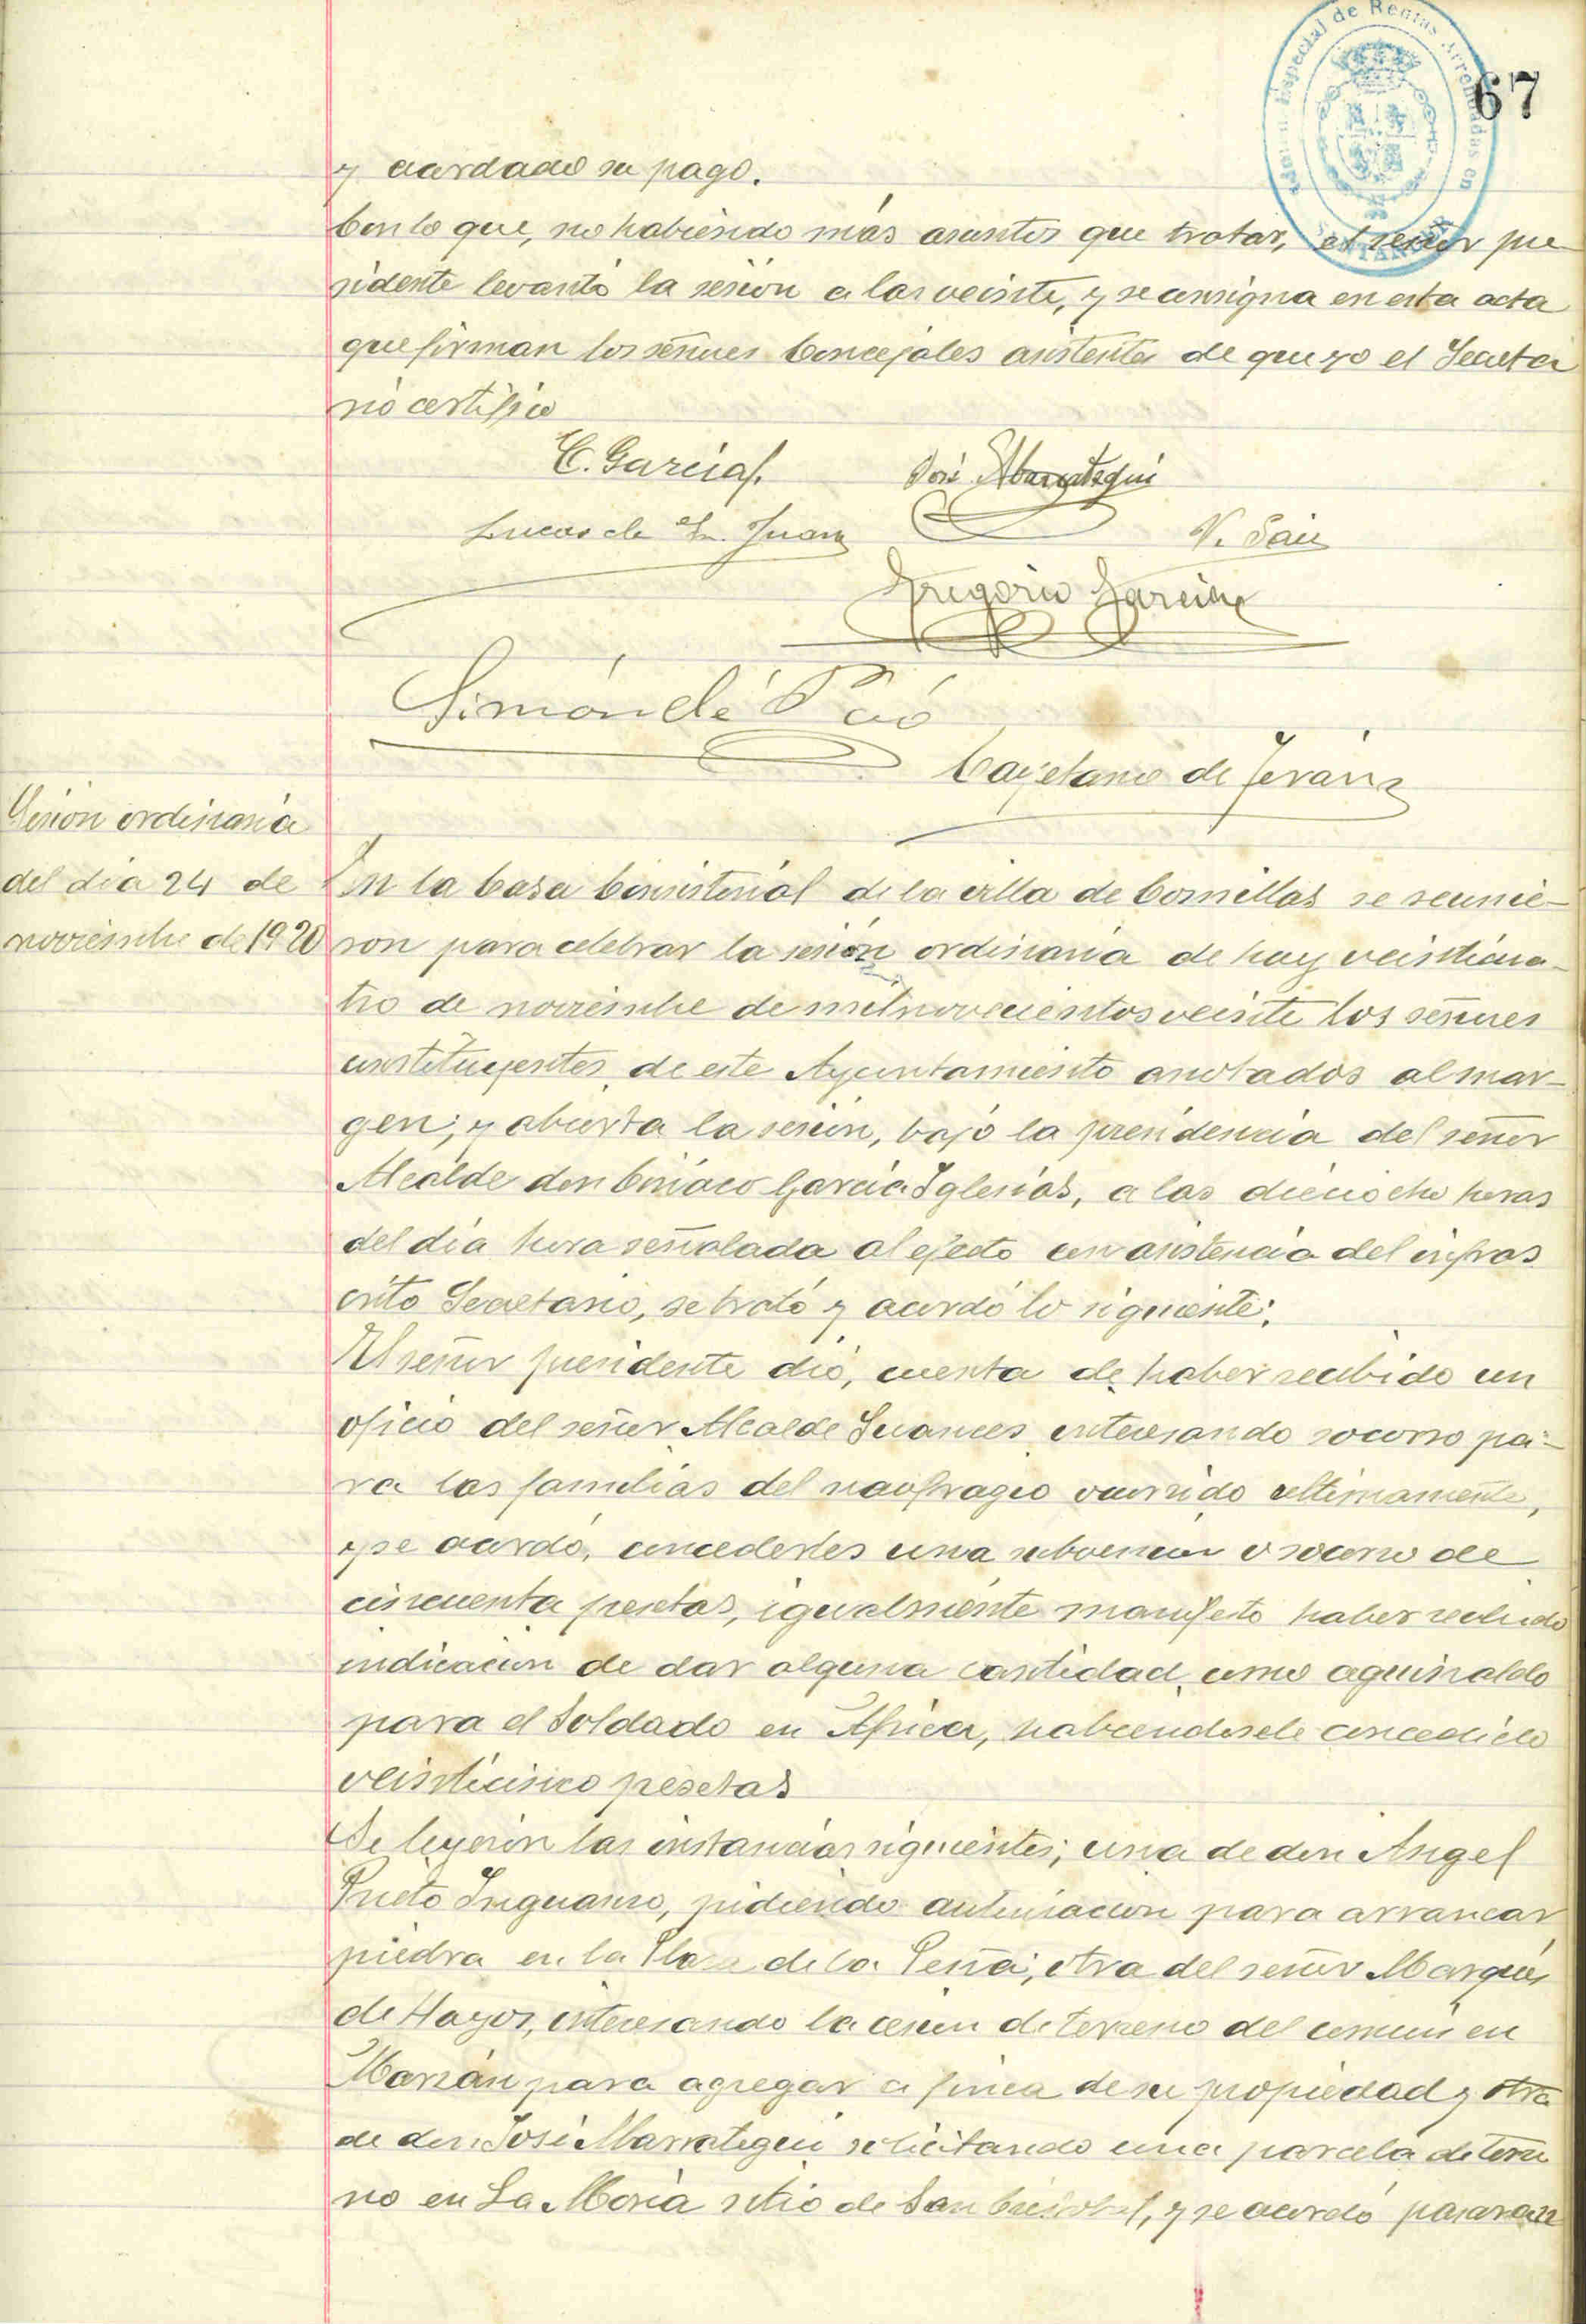 67
Especial de Rentas Arrendadas en
SANTANDER
y acordado su pago.
Con lo que, no habiendo más asuntos que tratar, el señor pre
sidente levantó la sesión a las veinte, y se consigna en esta acta
que firman los señores Concejales asistentes de que yo el Secreta
rio certifico
C. García
José Abarrategui
Lucas de Sn. Juan
V. Saiz
Gregorio García
Simón de Poó
Cayetano de Terán
Sesión ordinaria
del día 24 de
noviembre de 1920
En la Casa Consistorial de la villa de Comillas se reunie-
ron para celebrar la sesión ordinaria de hoy veinticua-
tro de noviembre de mil novecientos veinte los señores
constituyentes de este Ayuntamiento anotados al mar-
gen; y abierta la sesión, bajo la presidencia del señor
Alcalde don Ciriaco García Iglesias, a las dieciocho horas
del día hora señalada al efecto con asistencia del infras
crito Secretario, se trató y acordó lo siguiente:
El señor presidente dió, cuenta de haber recibido un
oficio del señor Alcalde Suances interesando socorro pa-
ra las familias del naufragio ocurrido ultimamente,
y se acordó, concederles una subvencion o socorro de
cincuenta pesetas, igualmente manifesto haber recibido
indicacion de dar alguna cantidad, como aguinaldo
para el Soldado en Africa, habiendosele concedido
veinticinco pesetas
Se leyeron las instancias siguientes; una de don Angel
Prieto Inguanzo, pidiendo autorizacion para arrancar
piedra en la Plaza de la Peña; otra del señor Marqués
de Hoyos, interesando la cesion de terreno del comun en
Marzán para agregar a finca de su propiedad y otra
de don José Abarrategui solicitando una parcela de terre
no en La Moría sitio de San Cristobal, y se acordó pasaran